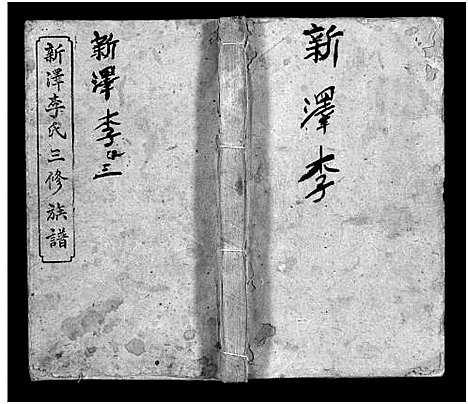 新澤李
新澤李氏三修族譜
新澤李
三